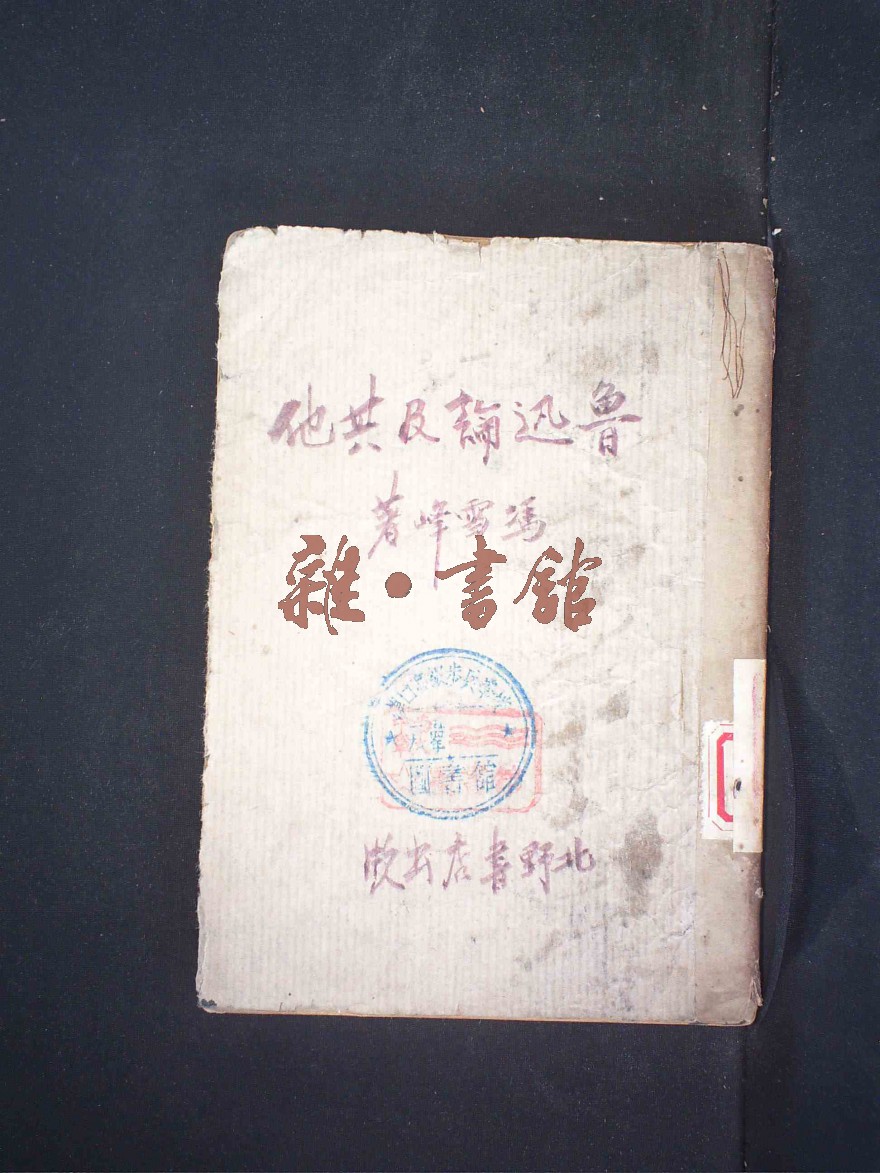 魯迅論及其他
馮雪峰著
雜·書館
圖書館
北野書店出版